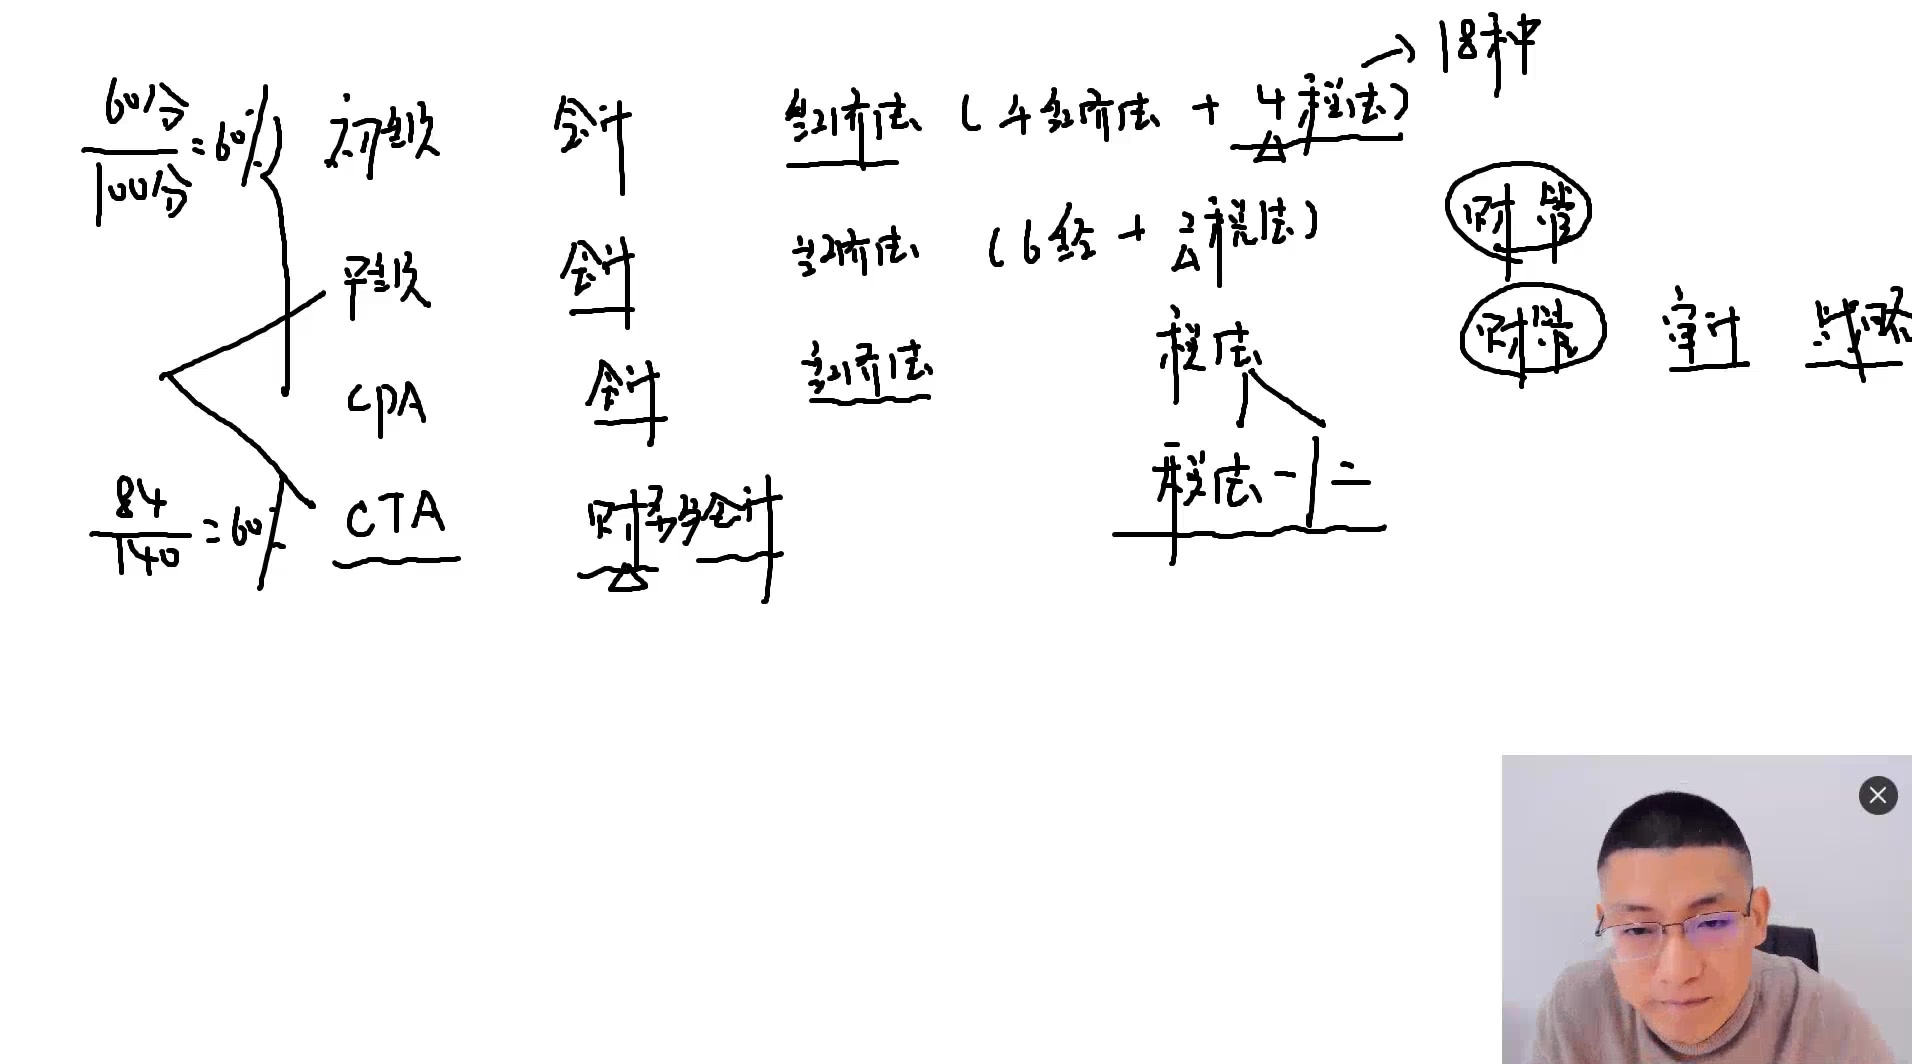 18种
60分 / 100分 = 60% 初级 会计 经济法 (4经济法 + 4税法)
中级 会计 经济法 (6经 + 2税法) 财管
CPA 会计 经济法 税法 财管 审计 战略
84 / 140 = 60% CTA 财务与会计 税法一 二